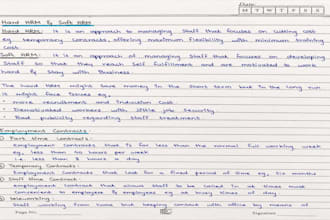 Date:
M T W T F S S
Hard HRM & Soft HRM
Hard HRM: it is an approach to managing Staff that focuses on cutting cost
eg. temporary contracts, offering maximum flexibility with minimum training
cost.
Soft HRM: it is an approach of managing Staff that focuses on developing
Staff so that they reach Self fulfillment and are motivated to work
hard & Stay with Business.
The hard HRM might save money in the Short term but in the long run
it might face issues eg.
• more recruitment and induction cost
• Demotivated workers with little job Security
• Bad publicity regarding staff treatment
Employment Contracts
① Part time Contracts:
Employment contracts that is for less than the normal full working week
eg. less than 40 hours per week
i.e. less than 8 hours a day
② Temporary Contracts:
Employment Contracts that last for a fixed period of time eg. Six months
Employment contract that allows Staff to be called in at times most
Convenient to employers & employees eg. at busy times of day
④ Teleworking:
Staff working from home but keeping contact with office by means of
Page No.